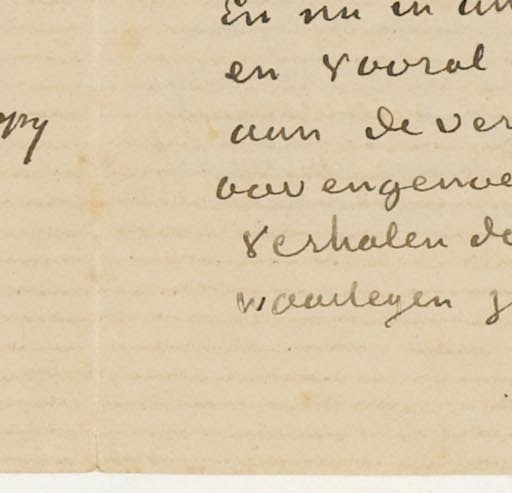 ppy
En nu in
en vooral
aan de ver
bovengenoe
verhalen da
waartegen